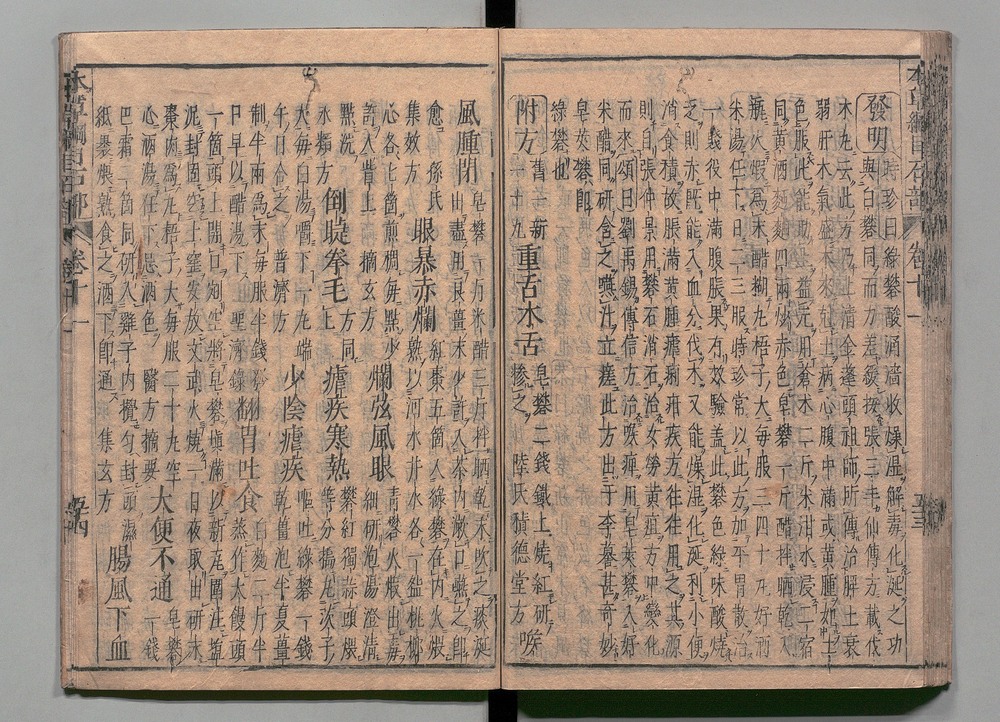 發明 時珍曰綠礬酸涌濇收燥濕解毒化涎之功
與白礬同而力差緩按張三丰仙傳方載伐
木丸云此方乃上清金蓬頭祖師所傳治脾土衰
弱肝木氣盛木來剋土病心腹中滿或黃腫如土
色服此能助土益元用蒼朮二斤米泔水浸二宿
同黃酒麪麴四兩炒赤色皂礬一斤醋拌晒乾入
瓶火煅爲末醋糊丸梧子大每服三四十丸好酒
米湯任下日二三服時珍常以此方加平胃散治
一賤役中滿腹脹果有效驗蓋此礬色綠味酸燒
之則赤既能入血分伐木又能燥濕化涎利小便
消食積故脹滿黃腫瘧痢疳疾方往往用之其源
則自張仲景用礬石消石治女勞黃疸方中變化
而來頌曰劉禹錫傳信方治喉痺用皂莢礬入好
米醋同研含之嚥汁立瘥此方出于李謩甚奇妙
皂莢礬即
綠礬也
附方 舊一新十九 重舌木舌 皂礬二錢鐵上燒紅研摻之 陸氏積德堂方 喉
風腫閉 皂礬一斤米醋三斤拌晒乾末吹之痰涎
出盡用良薑末少許入茶內漱口嚥之即
愈 孫氏集效方 眼暴赤爛 紅棗五箇入綠礬在內火煨
熟以河水井水各一盌桃柳
心各七箇煎稠每點少
許入眥上 摘玄方 爛弦風眼 青礬火煅出毒
細研泡湯澄清
點洗 永類方 倒睫拳毛 上方同 瘧疾寒熱 礬紅獨蒜頭煨
等分搗丸芡子
大每白湯嚼下一丸端
午日合之 普濟方 少陰瘧疾 嘔吐綠礬一錢
乾薑泡半夏薑
制半兩爲末每服半錢發
日早以醋湯下 聖濟錄 翻胃吐食 白麪二斤半
蒸作大饅頭
一箇頭上開口剜空將皂礬填滿以新瓦圍住鹽
泥封固挖土窰安放文武火燒一日夜取出研末
棗肉爲丸梧子大每服二十丸空
心酒湯任下忌酒色 醫方摘要 大便不通 皂礬
一錢
巴霜二箇同研入雞子內攪勻封頭濕
紙裹煨熟食之酒下即通 集玄方 腸風下血
本草綱目石部 卷十一 五十三
本草綱目石部 卷十一 五十四